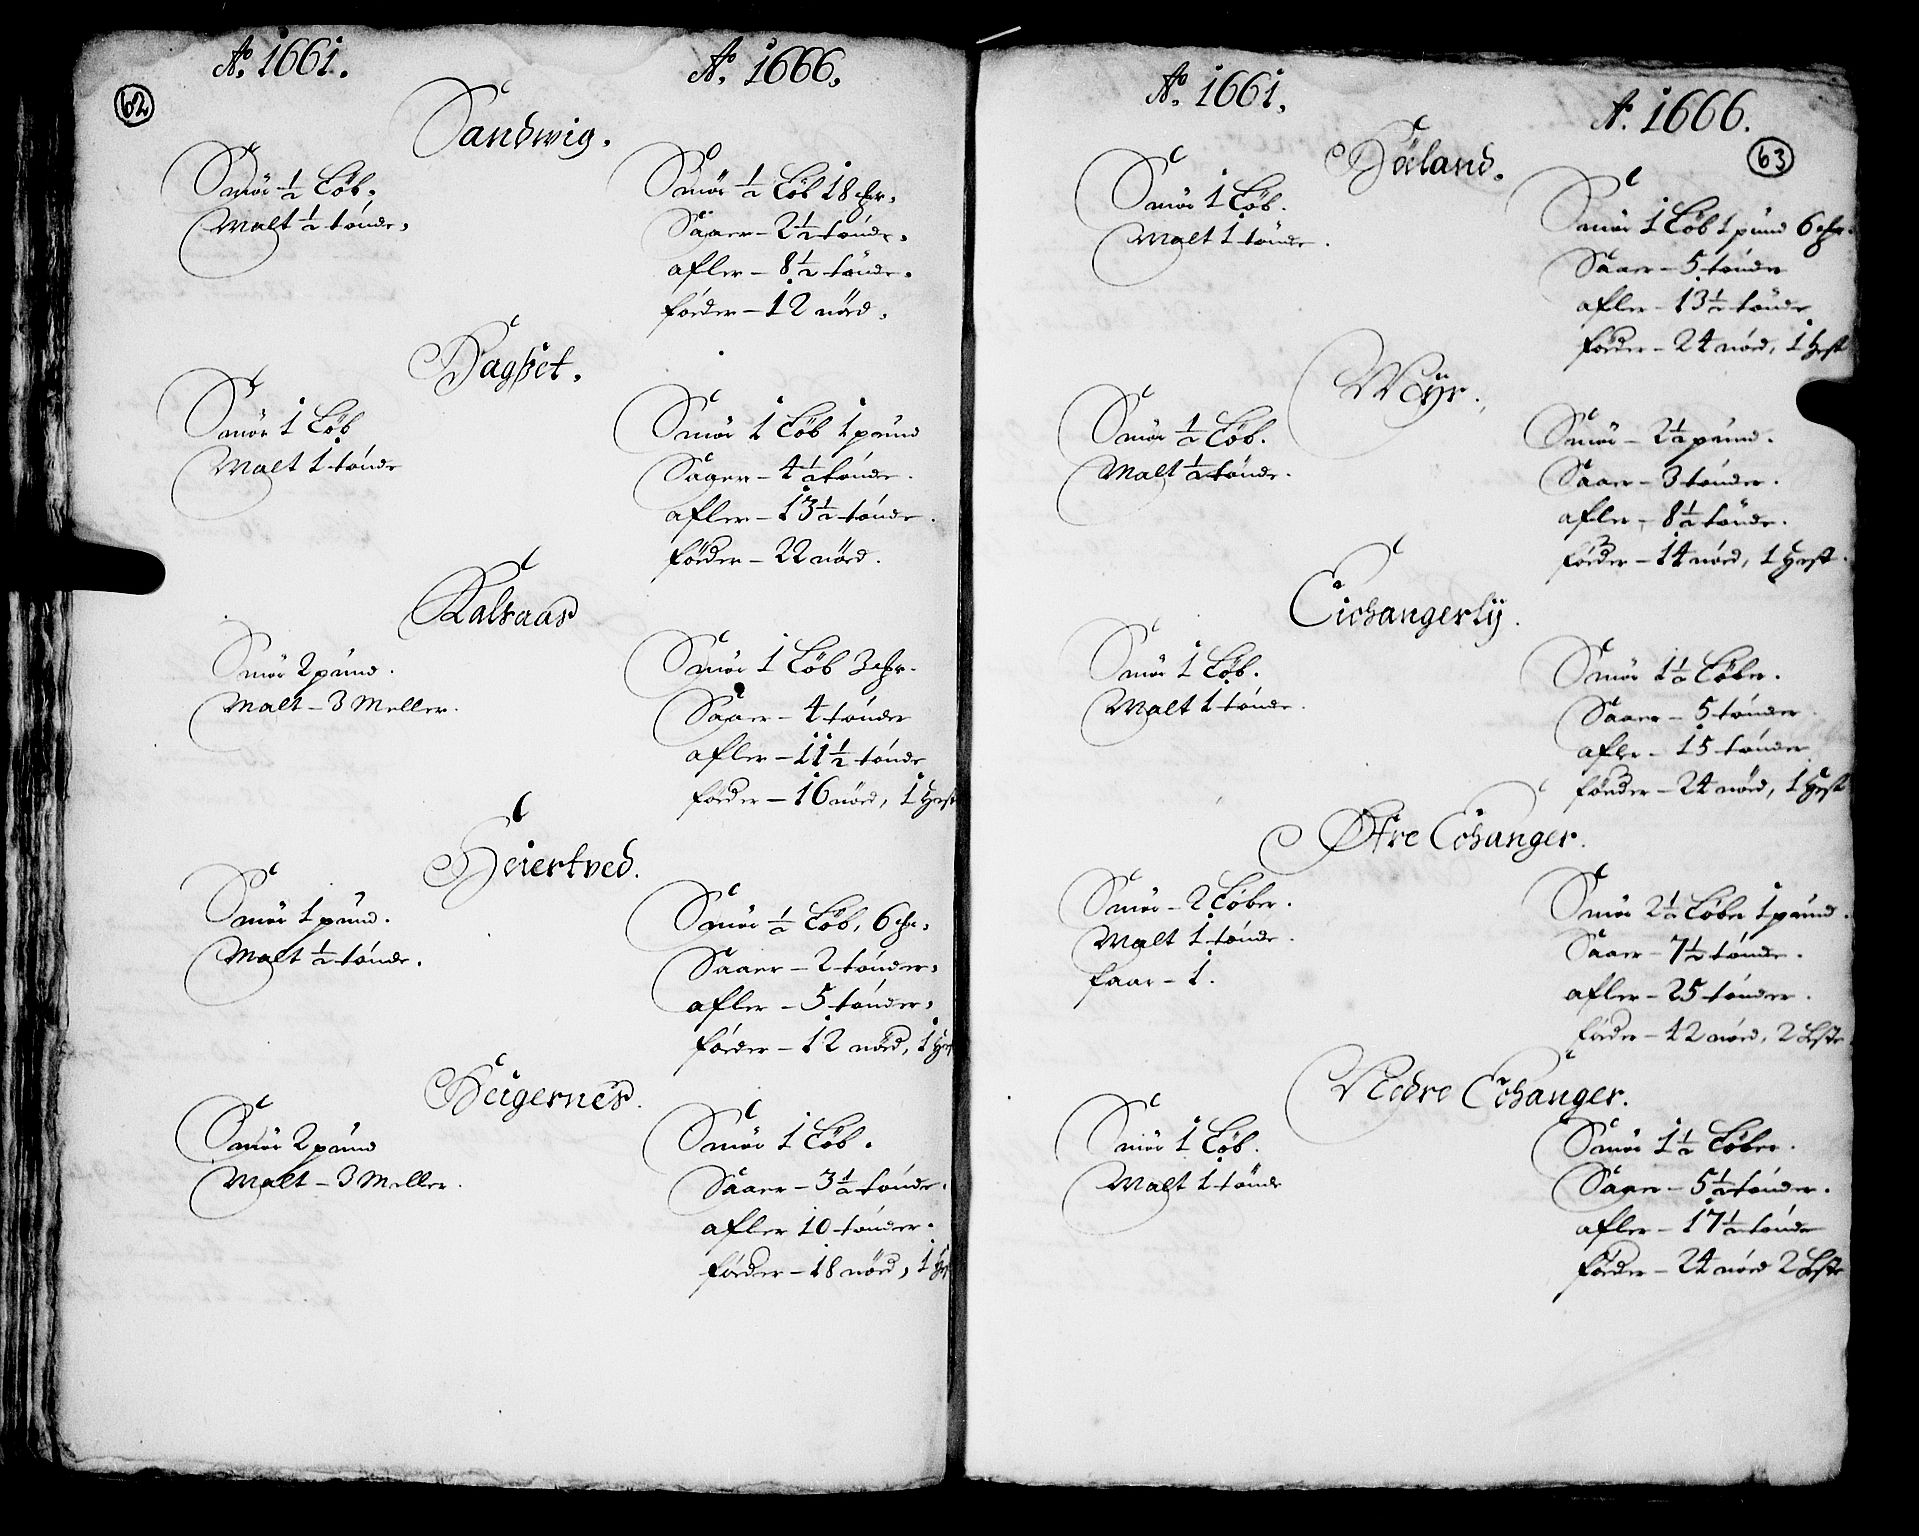 Aº. 1661. Aº. 1666.
62
Sandwig.
Smör ½ Löb.
Malt ½ tónde.
Smör ½ Löb 18 mr.
Saaer – 2½ tónde.
afler – 8½ tónde.
föeder – 12 nöed.
Hagßet.
Smör 1 Löb
Malt 1 tónde
Smör 1 Löb 1 pund
Saaer – 4½ tónde.
afler – 13½ tónde.
föeder – 22 nöed.
Kalsaas
Smör 2 pund.
Malt – 3 Meller.
Smör 1 Löb 3 mr.
Saaer – 4 tónder
afler – 11½ tónde
föeder – 16 nöed, 1 Hest
Heiertved.
Smör 1 pund.
Malt ½ tónde.
Smör ½ Löb, 6 mr.
Saaer – 2 tónder.
afler – 5 tónder.
föeder – 12 nöed, 1 Hest
Heigernes.
Smör 2 pund
Malt – 3 Meller.
Smör 1 Löb.
Saaer – 3½ tónde.
afler 10 tónder.
föeder – 18 nöed, 1 Hest
Aº. 1661. A. 1666.
63
Höeland.
Smör 1 Löb.
Malt 1 tónde.
Smör 1 Löb 1 pund 6 mr.
Saaer – 5 tónder
afler – 13½ tónde
föeder – 24 nöed, 1 Hest
Möÿr.
Smör ½ Löb.
Malt ½ tónde.
Smör – 2½ pund.
Saaer – 3 tónder.
afler – 8½ tónde.
föeder – 14 nöed, 1 Hest.
Eichangerlÿ.
Smör 1 Löb.
Malt 1 tónde.
Smör 1½ Löber.
Saaer – 5 tónder.
afler – 15 tónder
föeder – 24 nöed, 1 Hest
Øfre Echanger.
Smör – 2 Löber.
Malt 1 tónde.
faar – 1.
Smör 2½ Löber 1 pund.
Saaer – 7½ tónde.
afler – 25 tónder.
föeder – 42 nöed, 2 Heste.
Nedre Echanger.
Smör 1 Löb.
Malt 1 tónde
Smör 1½ Löber.
Saaer – 5½ tónder.
afler – 17½ tónde
föeder – 24 nöed 2 Heste